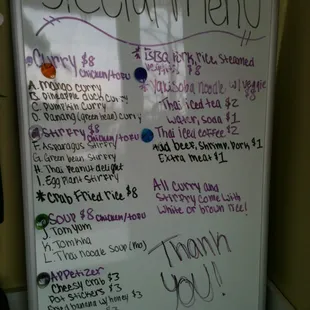 Special Menu
Curry $8
chicken/tofu
A. Mango curry
B. Pineapple duck curry
C. Pumpkin curry
D. Panang (green bean) curry
Stirfry $8
chicken/tofu
F. Asparagus Stirfry
G. Green bean Stirfry
H. Thai Peanut delight
I. Egg plant Stirfry
* Crab Fried rice $8
Soup $8 chicken/tofu
J. Tom yum
K. Tom kha
L. Thai Noodle Soup (Pho)
Appetizer
Cheesy crab $3
Pot Stickers $3
Fried banana w/ honey $3
BBQ Pork, rice, steamed
veggies $8
Yakisoba Noodle w/ veggie
$7
Thai iced tea $2
Water, Soda $1
Thai Iced coffee $2
Add beef, Shrimp, Pork $1
Extra meat $1
All Curry and
Stirfry come with
white or brown rice!
Thank
you!